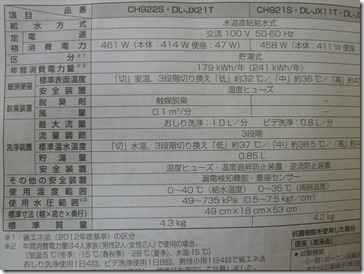 CH922S・DL-JX21T CH921S・DL-JX11T・DL-
給水方式 水道直結給水式
定電源 交流 100 V 50-60 Hz
格消費電力 461 W (本体：414 W 便座：47 W) 458 W (本体：411 W
区分※1 貯湯式
年間消費電力量※2 179 kWh/年 (241 kWh/年)
暖房便座 標準表面温度 「切」室温、3段階切り換え「低」約32℃/「中」約36℃/「高」約40
安全装置 温度ヒューズ
脱臭装置 脱臭剤 触媒脱臭 —
風量 0.1 m³/分 —
洗浄装置 最大流量 おしり洗浄：1.0 L/分 ビデ洗浄：0.8 L/分
流量調節 3段階
標準温水温度 「切」水温、3段階切り換え「低」約37℃/「中」約38.5℃/「高」約4
貯湯量 0.85 L
安全装置 温度ヒューズ・温度過昇防止装置・逆流防止装置
その他の安全装置 漏電検知機能・着座センサー
使用温度範囲 0~40℃(給水温度) 0~35℃(周囲温度)
使用水圧範囲 49~735 kPa (0.5~7.5 kgf/cm²)
標準寸法(幅×高さ×奥行) 49 cm×18 cm×53 cm
標準質量 4.3 kg 4.2 kg
※1 省エネ法(2012年度基準)の区分
※2 年間消費電力量は4人家族(男性2人、女性2人)で使用の場合。
(室温5℃(冬季)・15℃(春秋季)・28℃(夏季)、水温:15℃、
おしり洗浄使用1日4回、ビデ洗浄使用1日8回、男性小用使用1日4回
抗菌関係を使用した
便座(着座面)